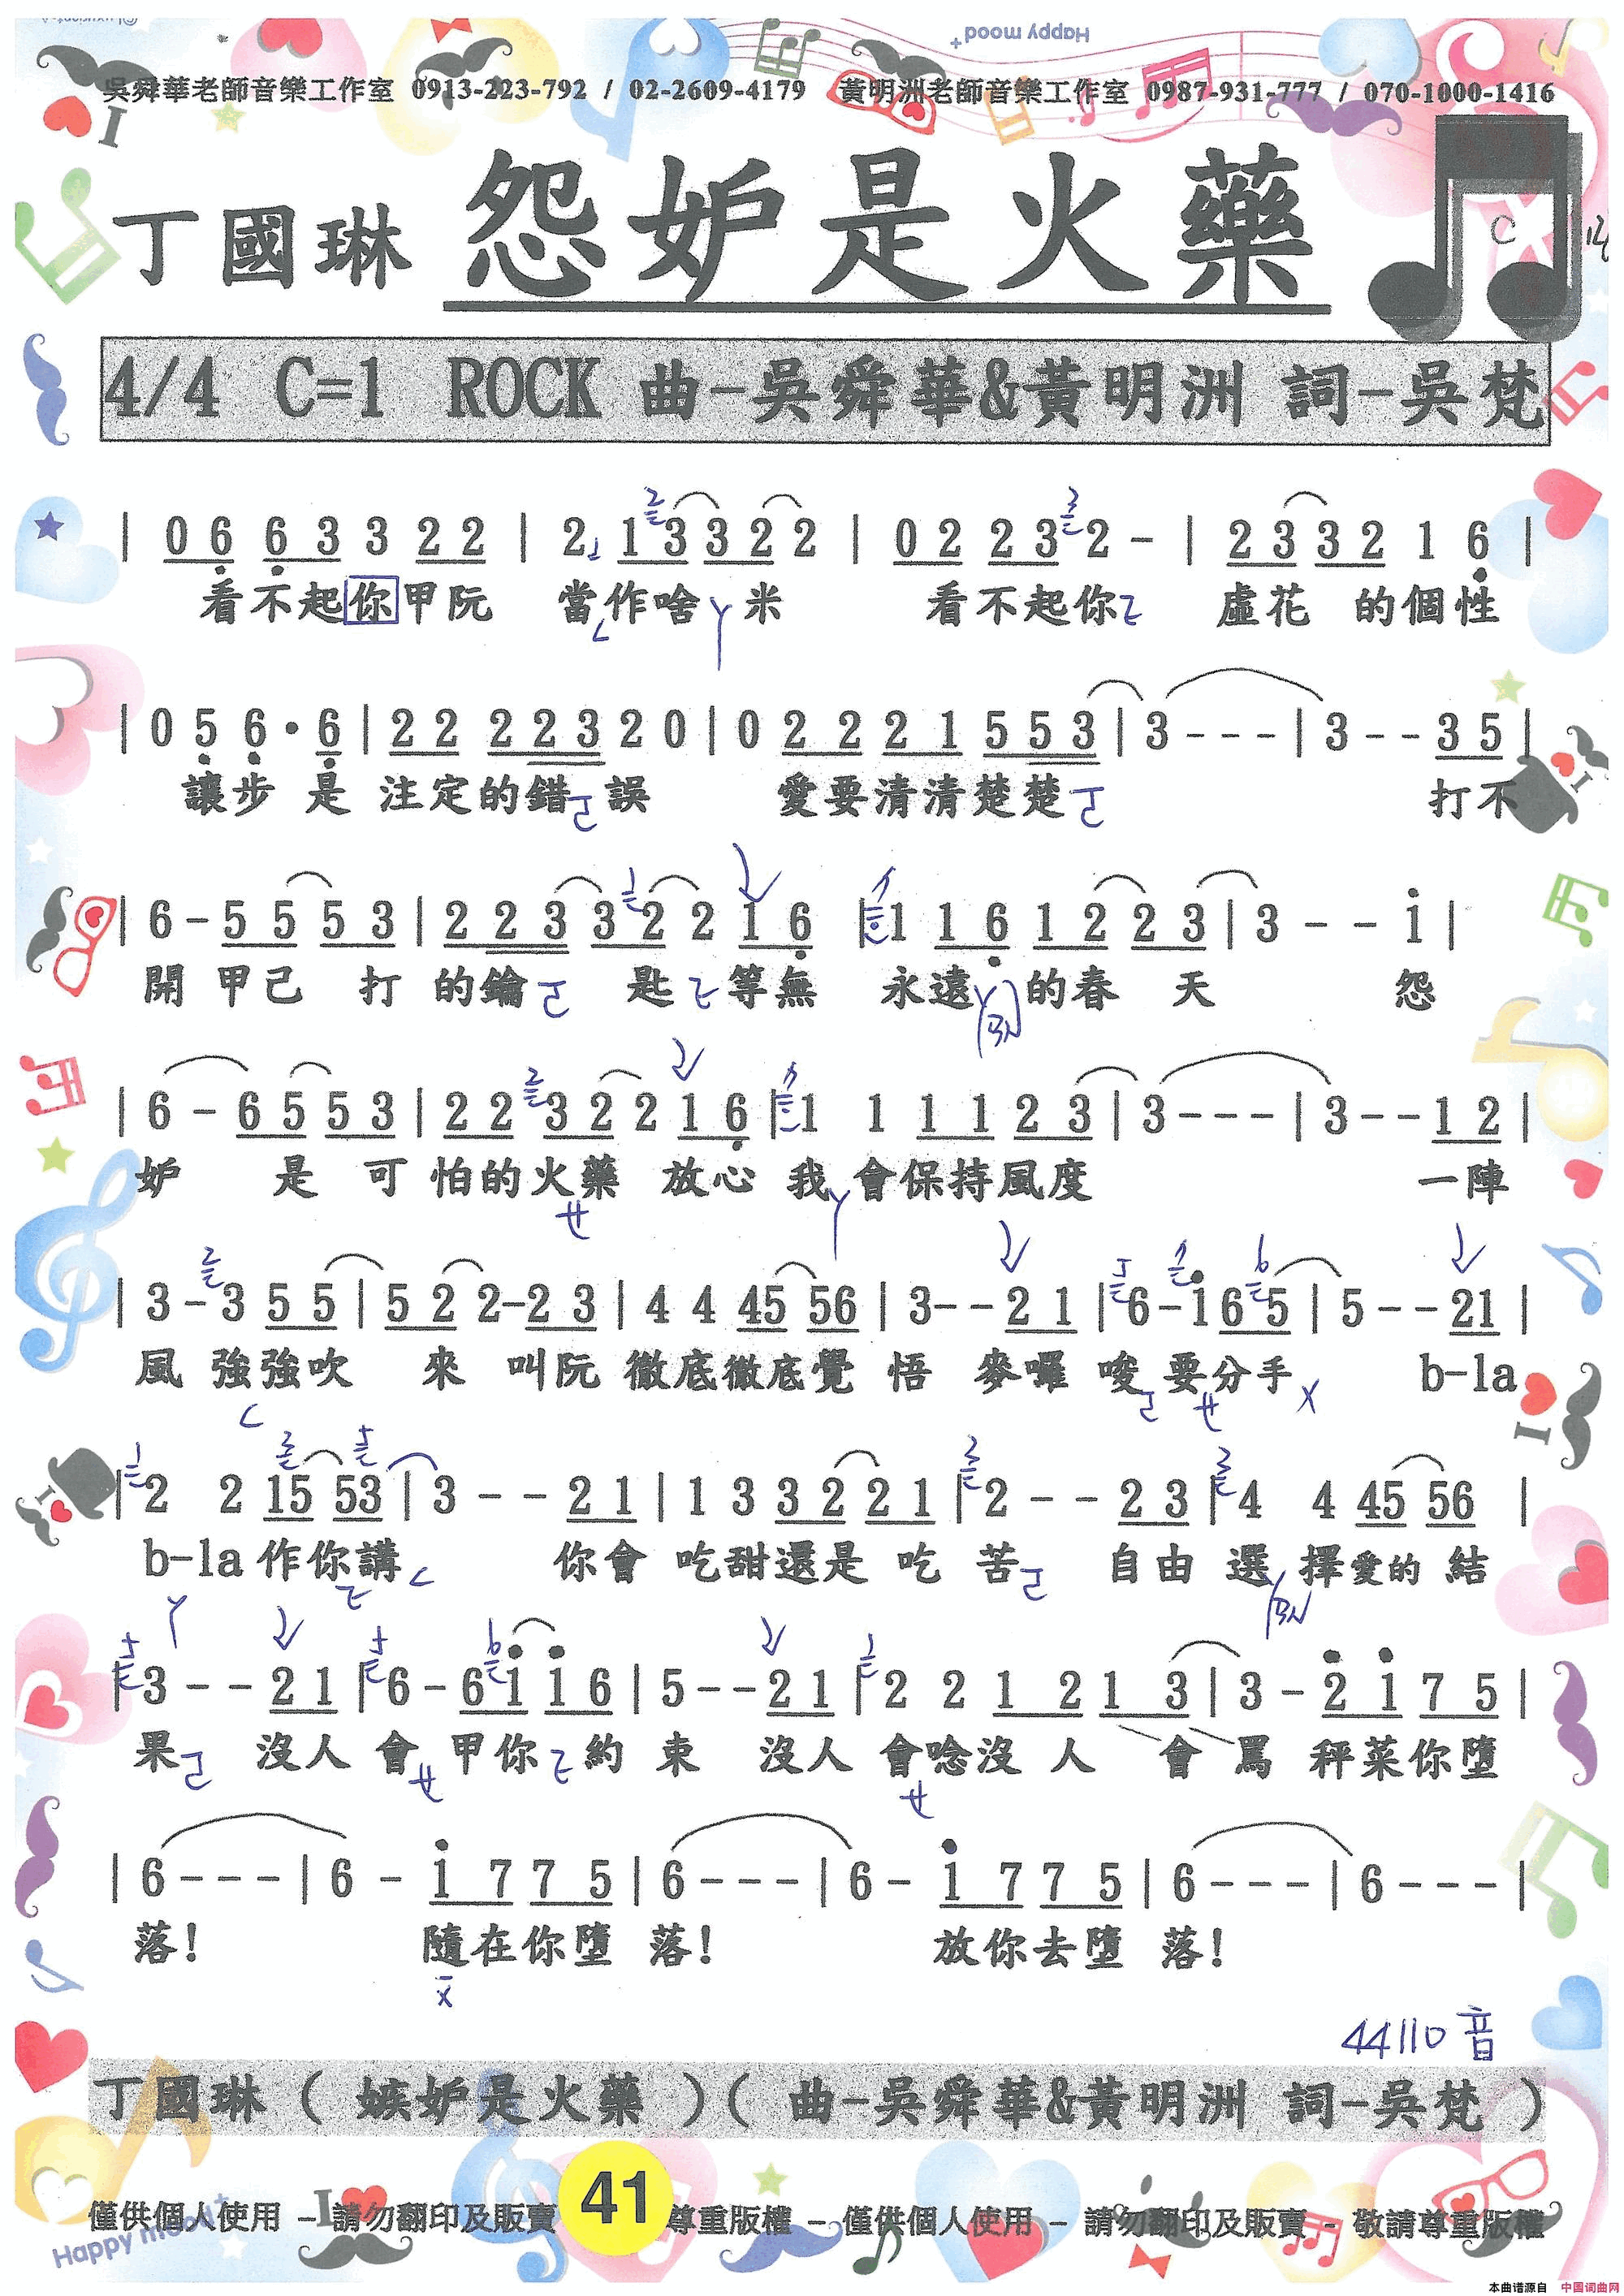 Happy mood+
吳舜華老師音樂工作室 0913-223-792 / 02-2609-4179 黃明洲老師音樂工作室 0987-931-777 / 070-1000-1416
丁國琳 怨妒是火藥
4/4 C=1 ROCK 曲-吳舜華&黃明洲 詞-吳梵
| 0 6̣ 6̣ 3 3 2 2 | 2. 1 3 3 2 2 | 0 2 2 3 2 - | 2 3 3 2 1 6̣ |
看不起你甲阮 當作啥 米 看不起你 虛花 的個性
| 0 5̣ 6̣ · 6̣ | 2 2 2 2 3 2 0 | 0 2 2 2 1 5 5 3 | 3 - - - | 3 - - 3 5 |
讓步 是 注定的錯 誤 愛要清清楚楚 打不
| 6 - 5 5 5 3 | 2 2 3 3 2 2 1 6̣ | 1 1 6̣ 1 2 2 3 | 3 - - i |
開 甲己 打 的鑰 匙 等無 永遠 的春 天 怨
| 6 - 6 5 5 3 | 2 2 3 2 2 1 6̣ | 1 1 1 1 2 3 | 3 - - - | 3 - - 1 2 |
妒 是 可 怕的火藥 放心 我 會保持風度 一陣
| 3 - 3 5 5 | 5 2 2 - 2 3 | 4 4 45 56 | 3 - - 2 1 | 6 - i 6 5 | 5 - - 21 |
風 強強吹 來 叫阮 徹底徹底覺 悟 麥囉 唆 要分手 b-la
| 2 2 15 53 | 3 - - 2 1 | 1 3 3 2 2 1 | 2 - - 2 3 | 4 4 45 56 |
b-la 作你講 你會 吃甜還是 吃 苦 自由 選 擇愛的 結
| 3 - - 2 1 | 6 - 6 i i 6 | 5 - - 2 1 | 2 2 1 2 1 3 | 3 - 2̇ i 7 5 |
果 沒人 會 甲你 約 束 沒人 會唸沒 人 會 罵 秤菜你墮
| 6 - - - | 6 - i 7 7 5 | 6 - - - | 6 - i 7 7 5 | 6 - - - | 6 - - - |
落! 隨在你墮 落! 放你去墮 落!
44110 音
丁國琳 ( 嫉妒是火藥 )( 曲-吳舜華&黃明洲 詞-吳梵 )
僅供個人使用 - 請勿翻印及販賣 41 尊重版權 - 僅供個人使用 - 請勿翻印及販賣 - 敬請尊重版權
Happy mood+
本曲谱源自 中国词曲网